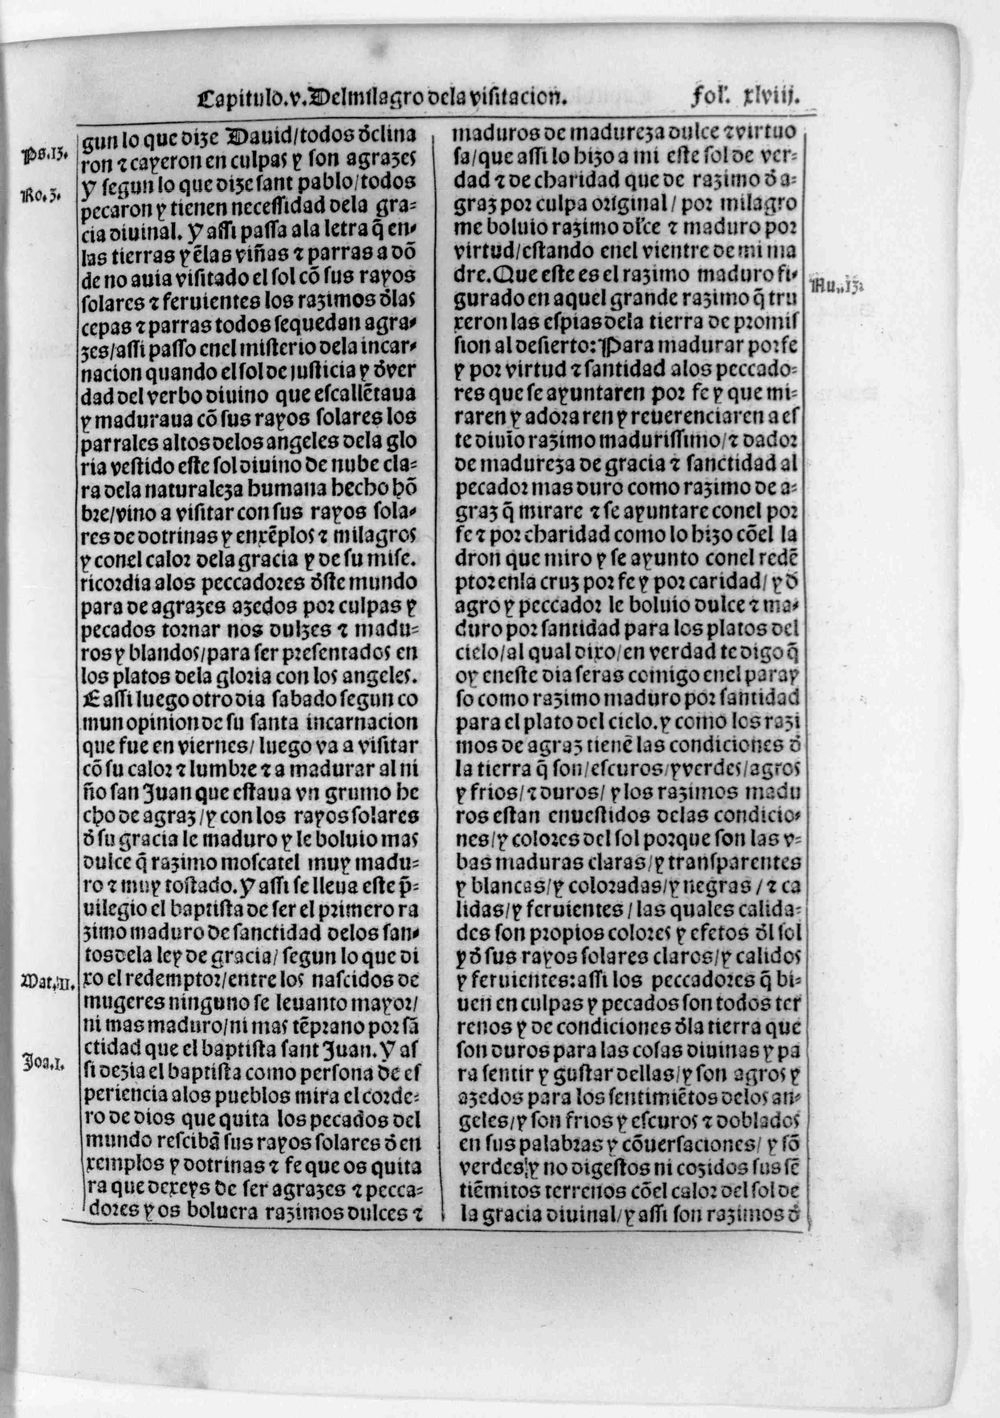 Capitulo.v. Del milagro dela visitacion. fol. xlviij.
Ps.13.
Ro.3.
Mat.11.
Joa.1.
gun lo que dize Dauid/todos đclina
ron ⁊ cayeron en culpas y son agrazes
Y segun lo que dize sant pablo/todos
pecaron y tienen necessidad dela gra-
cia diuinal. Y assi passa ala letra q̃ en-
las tierras y ẽlas viñas ⁊ parras a dõ
de no auia visitado el sol cõ sus rayos
solares ⁊ feruientes los razimos đlas
cepas ⁊ parras todos se quedan agra-
zes/assi passo enel misterio dela incar-
nacion quando el sol de justicia y đver
dad del verbo diuino que escallẽtaua
y maduraua cõ sus rayos solares los
parrales altos delos angeles dela glo
ria vestido este sol diuino de nube cla-
ra dela naturaleza humana hecho hõ
bre/vino a visitar con sus rayos sola-
res de dotrinas y enxẽplos ⁊ milagros
y conel calor dela gracia y de su mise.
ricordia alos peccadores đste mundo
para de agrazes azedos por culpas y
pecados tornar nos dulzes ⁊ madu-
ros y blandos/para ser presentados en
los platos dela gloria con los angeles.
E assi luego otro dia sabado segun co
mun opinion de su santa incarnacion
que fue en viernes/ luego va a visitar
cõ su calor ⁊ lumbre ⁊ a madurar al ni
ño san Juan que estaua vn grumo he
cho de agraz/y con los rayos solares
đ su gracia le maduro y le boluio mas
dulce q̃ razimo moscatel muy madu-
ro ⁊ muy tostado. Y assi se lleua este p̃-
uilegio el baptista de ser el primero ra
zimo maduro de sanctidad delos san-
tos dela ley de gracia/ segun lo que di
xo el redemptor/entre los nascidos de
mugeres ninguno se leuanto mayor/
ni mas maduro/ni mas tẽprano por sã
ctidad que el baptista sant Juan. Y as
si dezia el baptista como persona de es
periencia alos pueblos mira el corde-
ro de dios que quita los pecados del
mundo rescibã sus rayos solares đ en
xemplos y dotrinas ⁊ fe que os quita
ra que dexeys de ser agrazes ⁊ pecca-
dores y os boluera razimos dulces ⁊
maduros de madureza dulce ⁊ virtuo
sa/que assi lo hizo a mi este sol de ver-
dad ⁊ de charidad que de razimo đ a-
graz por culpa original/ por milagro
me boluio razimo dl'ce ⁊ maduro por
virtud/estando enel vientre de mi ma
dre. Que este es el razimo maduro fi-
gurado en aquel grande razimo q̃ tru
xeron las espias dela tierra de promis
sion al desierto: Para madurar por fe
y por virtud ⁊ santidad alos peccado-
res que se ayuntaren por fe y que mi-
raren y adoraren y reuerenciaren a es
te diuĩo razimo madurissimo/⁊ dador
de madureza de gracia ⁊ sanctidad al
pecador mas duro como razimo de a-
graz q̃ mirare ⁊ se ayuntare conel por
fe ⁊ por charidad como lo hizo cõel la
dron que miro y se ayunto conel redẽ
ptor enla cruz por fe y por caridad/ y đ
agro y peccador le boluio dulce ⁊ ma-
duro por santidad para los platos del
cielo/al qual dixo/en verdad te digo q̃
oy eneste dia seras comigo enel paray
so como razimo maduro por santidad
para el plato del cielo. y como los razi
mos de agraz tienẽ las condiciones đ
la tierra q̃ son/escuros/y verdes/agros
y frios/⁊ duros/ y los razimos madu
ros estan enuestidos delas condicio-
nes/y colores del sol porque son las v-
bas maduras claras/y transparentes
y blancas/y coloradas/y negras/⁊ ca
lidas/y feruientes/las quales calida-
des son propios colores y efetos đl sol
y đ sus rayos solares claros/y calidos
y feruientes:assi los peccadores q̃ bi-
uen en culpas y pecados son todos ter
renos y de condiciones đla tierra que
son duros para las cosas diuinas y pa
ra sentir y gustar dellas/y son agros y
azedos para los sentimiẽtos delos an-
geles/y son frios y escuros ⁊ doblados
en sus palabras y cõuersaciones/ y sõ
verdes/y no digestos ni cozidos sus sẽ
tiẽmitos terrenos cõel calor del sol de
la gracia diuinal/y assi son razimos đ
Nu.13.